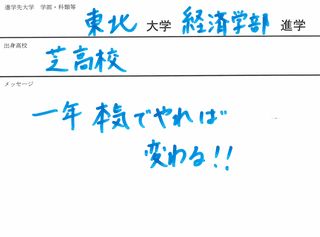 進学先大学 学部・科類等
東北 大学 経済学部 進学
出身高校
芝高校
メッセージ
一年 本気でやれば
変わる!!